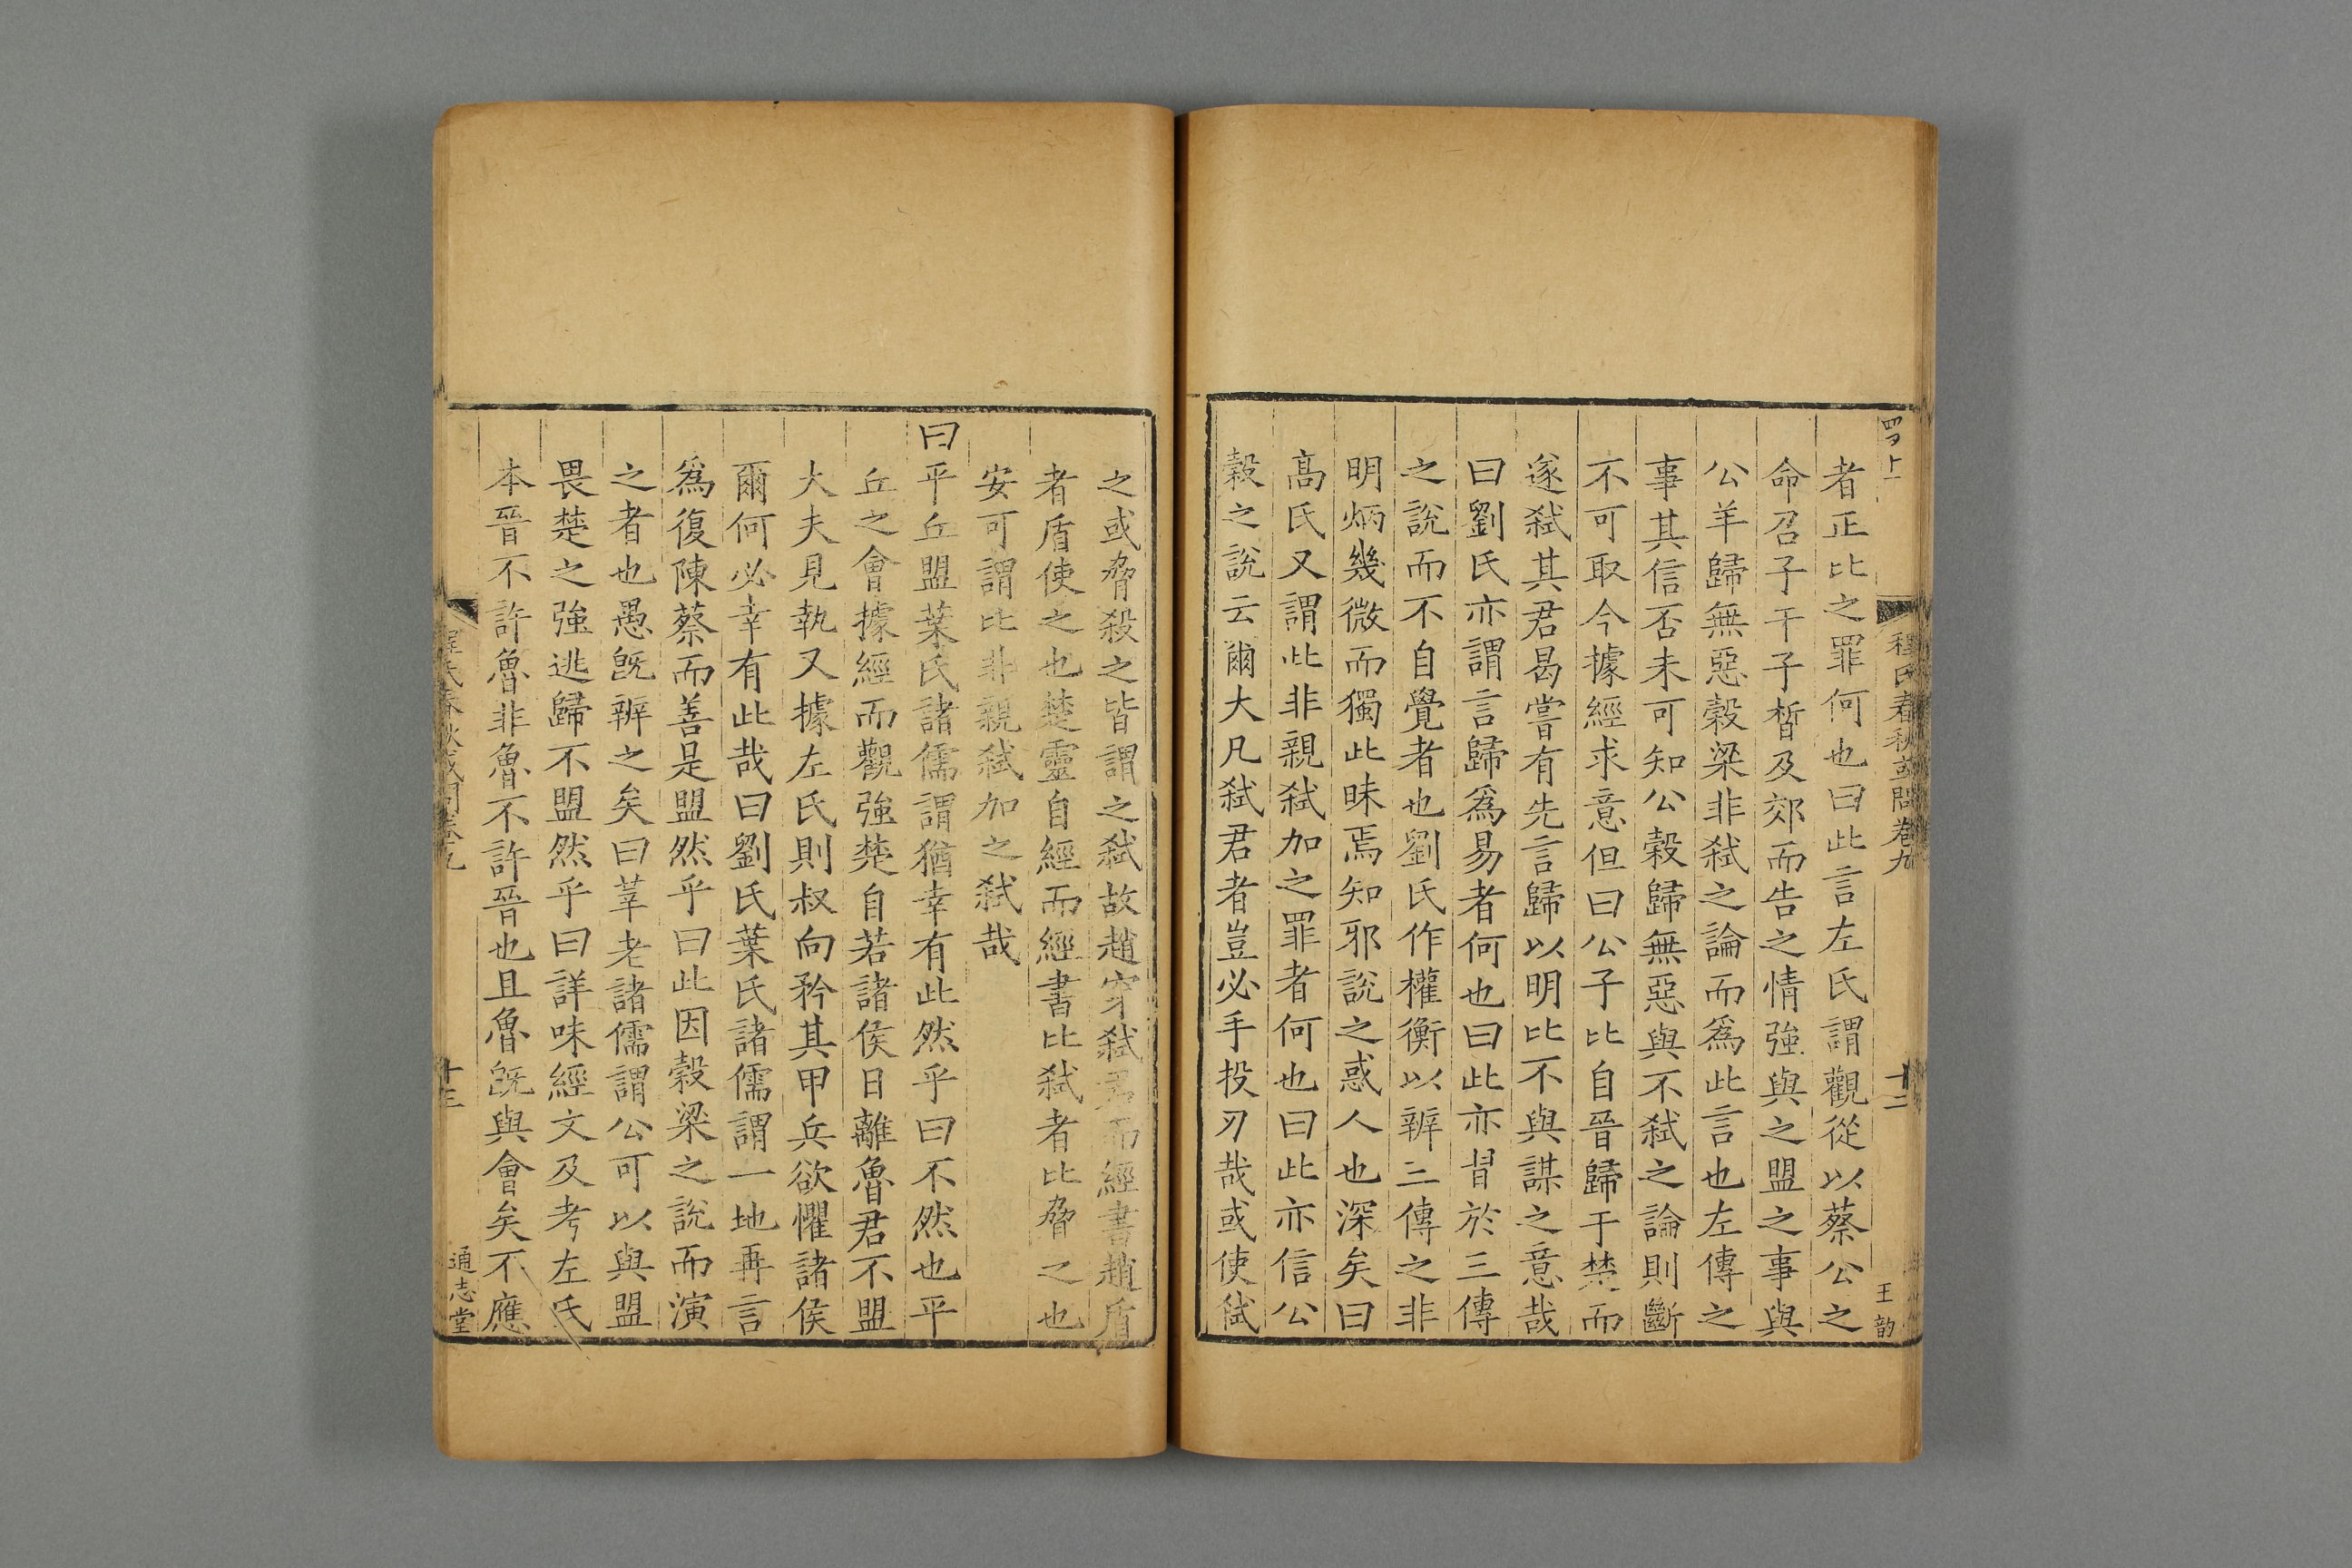 程氏春秋或問卷九
十二
王韵
者正比之罪何也曰此言左氏謂觀從以蔡公之
命召子干子晳及郊而告之情強與之盟之事與
公羊歸無惡榖梁非弑之論而爲此言也左傳之
事其信否未可知公榖歸無惡與不弑之論則斷
不可取今據經求意但曰公子比自晉歸于楚而
遂弑其君曷嘗有先言歸以明比不與謀之意哉
曰劉氏亦謂言歸爲易者何也曰此亦㫺於三傳
之說而不自覺者也劉氏作權衡以辨三傳之非
明炳幾微而獨此昧焉知邪說之惑人也深矣曰
高氏又謂此非親弑加之罪者何也曰此亦信公
榖之說云爾大凡弑君者豈必手投刃哉或使弑
之或脅殺之皆謂之弑故趙穿弑君而經書趙盾
者盾使之也楚靈自經而經書比弑者比脅之也
安可謂比非親弑加之弑哉
曰平丘盟葉氏諸儒謂猶幸有此然乎曰不然也平
丘之會據經而觀強楚自若諸侯日離魯君不盟
大夫見執又據左氏則叔向矜其甲兵欲懼諸侯
爾何必幸有此哉曰劉氏葉氏諸儒謂一地再言
爲復陳蔡而善是盟然乎曰此因榖梁之說而演
之者也愚旣辨之矣曰莘老諸儒謂公可以與盟
畏楚之強逃歸不盟然乎曰詳味經文及考左氏
本晉不許魯非魯不許晉也且魯旣與會矣不應
程氏春秋或問卷九
十三
通志堂